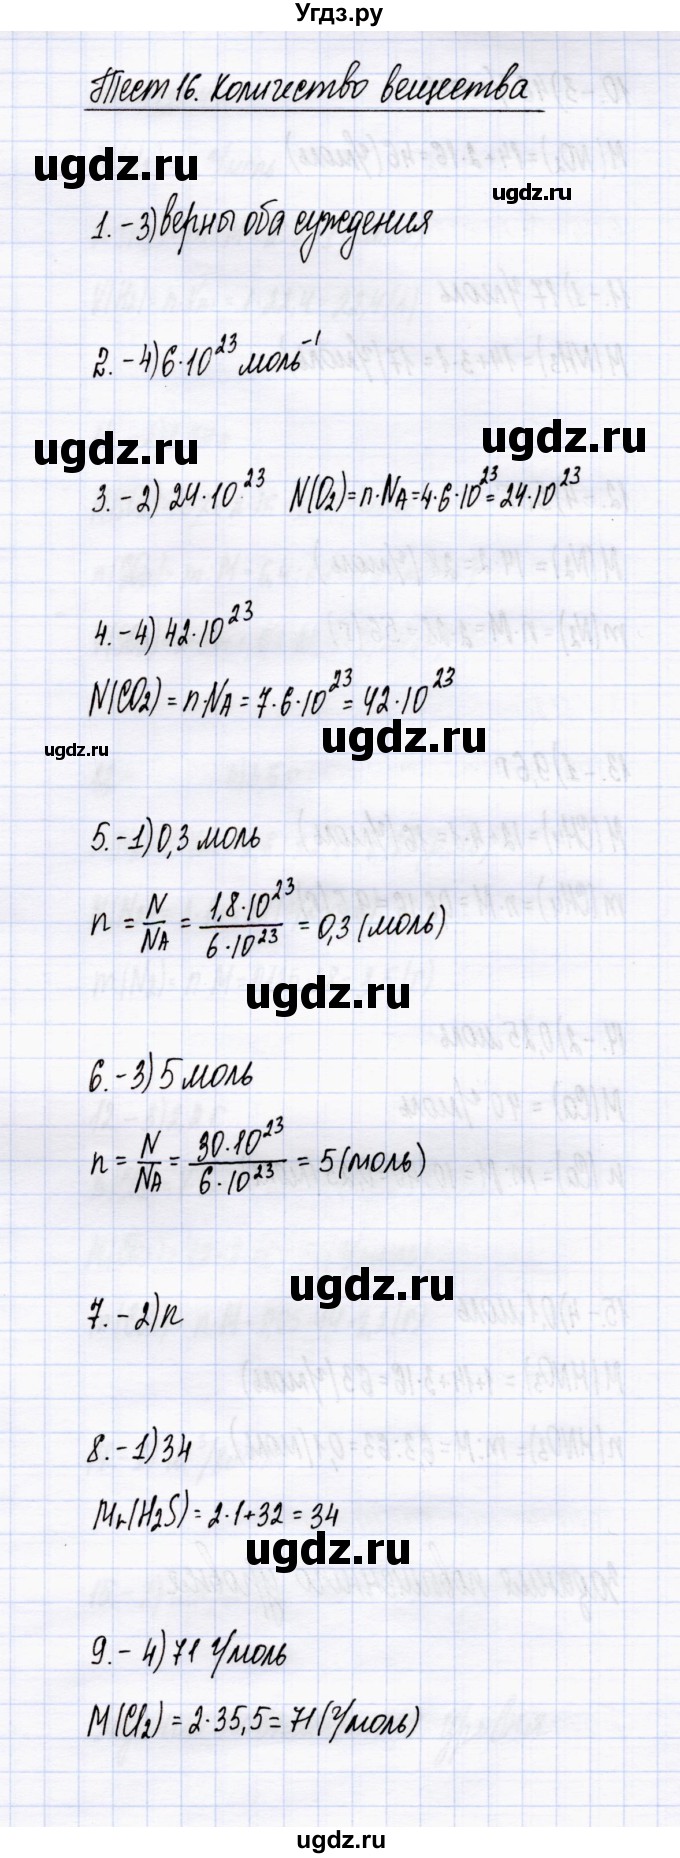 Угдз.ру
Тест 16. Количество вещества
ugdz.ru
ugdz.ru
1. - 3) верны оба суждения
2. - 4) 6·10²³ моль⁻¹
ugdz.ru
ugdz.ru
3. - 2) 24·10²³ N(O₂) = n·NA = 4·6·10²³ = 24·10²³
4. - 4) 42·10²³
N(CO₂) = n·NA = 7·6·10²³ = 42·10²³
ugdz.ru
ugdz.ru
5. - 1) 0,3 моль
n = N/NA = 1,8·10²³/6·10²³ = 0,3 (моль)
ugdz.ru
6. - 3) 5 моль
n = N/NA = 30·10²³/6·10²³ = 5 (моль)
ugdz.ru
7. - 2) n
8. - 1) 34
Mr(H₂S) = 2·1+32 = 34
ugdz.ru
9. - 4) 71 г/моль
M(Cl₂) = 2·35,5 = 71 (г/моль)
ugdz.ru